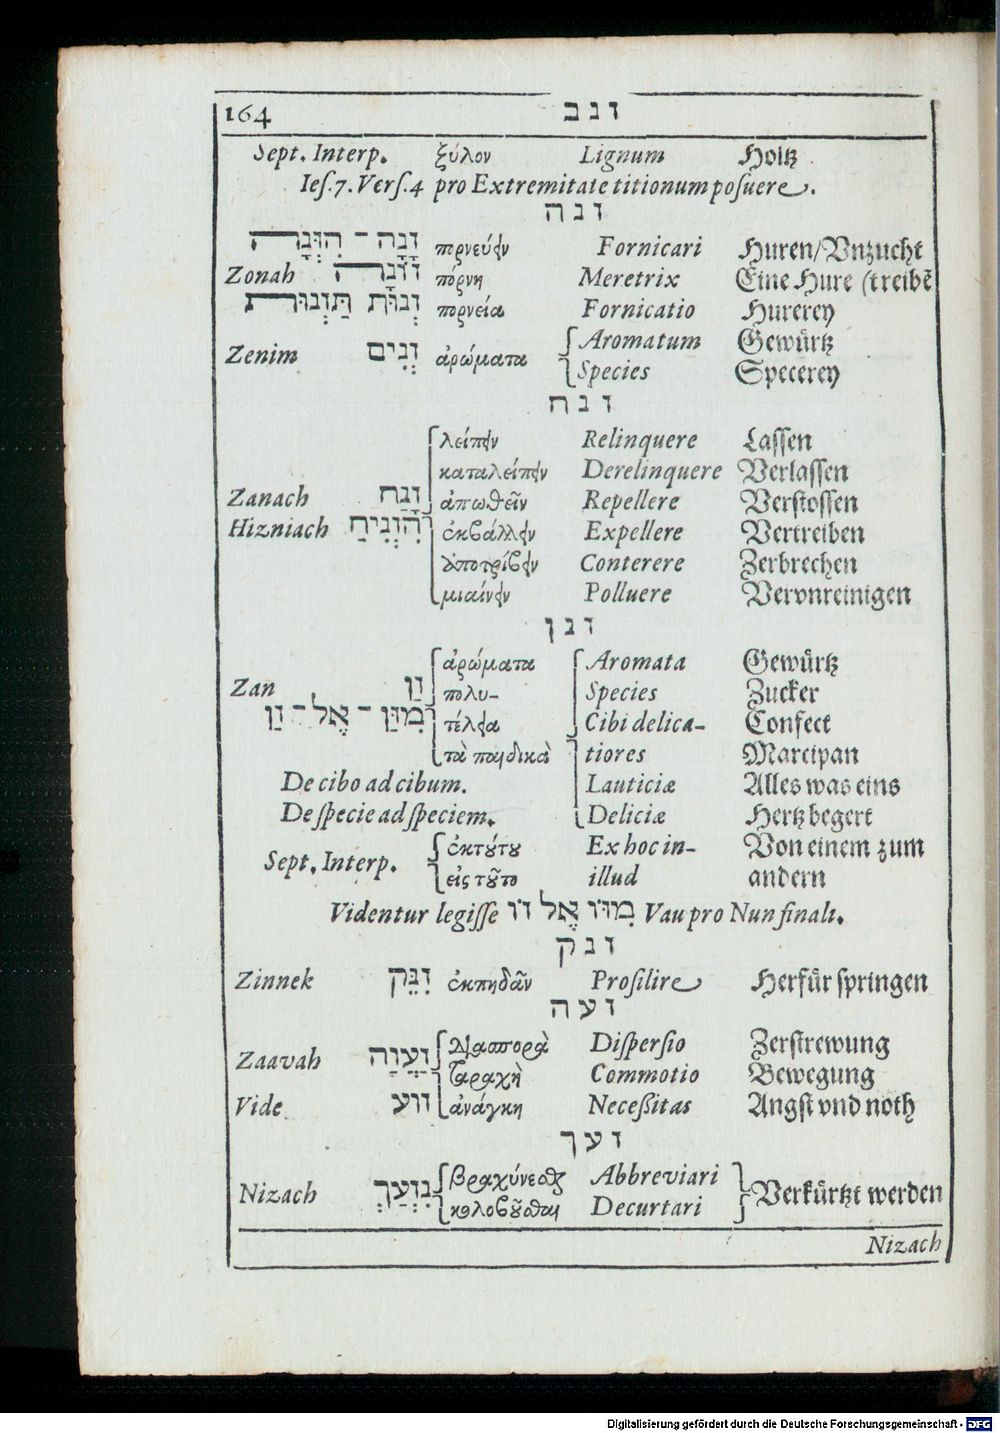 164 זנב
Sept. Interp. ξύλον Lignum Holtz
Ies. 7. Vers. 4 pro Extremitate titionum posuere.
זנה
זָנָה - הִזְנָה πορνεύειν Fornicari Huren/Vnzucht
Zonah זוֹנָה πόρνη Meretrix Eine Hure (treibẽ
זְנוּת תַּזְנוּת πορνεία Fornicatio Hurerey
Zenim זְנִים ἀρώματα Aromatum Gewürtz
Species Specerey
זנח
λείπειν Relinquere Lassen
καταλείπειν Derelinquere Verlassen
Zanach זָנַח ἀπωθεῖν Repellere Verstossen
Hizniach הִזְנִיחַ ἐκβάλλειν Expellere Vertreiben
ἀποτρίβειν Conterere Zerbrechen
μιαίνειν Polluere Vervnreinigen
זנן
ἀρώματα Aromata Gewürtz
Zan זַן πολυ- Species Zucker
מִזַּן - אֶל - זַן τέλεια Cibi delica- Confect
τὰ παιδικὰ tiores Marcipan
De cibo ad cibum. Lauticiæ Alles was eins
De specie ad speciem. Deliciæ Hertz begert
Sept. Interp. ἐκ τούτου Ex hoc in- Von einem zum
εἰς τοῦτο illud andern
Videntur legisse מִזּוֹ אֶל זוֹ Vau pro Nun finali.
זנק
Zinnek זִנֵּק ἐκπηδᾶν Prosilire Herfür springen
זעה
Zaavah זַעֲוָה διασπορὰ Dispersio Zerstrewung
ταραχὴ Commotio Bewegung
Vide זוע ἀνάγκη Necessitas Angst vnd noth
זעך
βραχύνεσθαι Abbreviari
Nizach נִזְעַךְ Verkürtzt werden
κολοβοῦσθαι Decurtari
Nizach
Digitalisierung gefördert durch die Deutsche Forschungsgemeinschaft - DFG